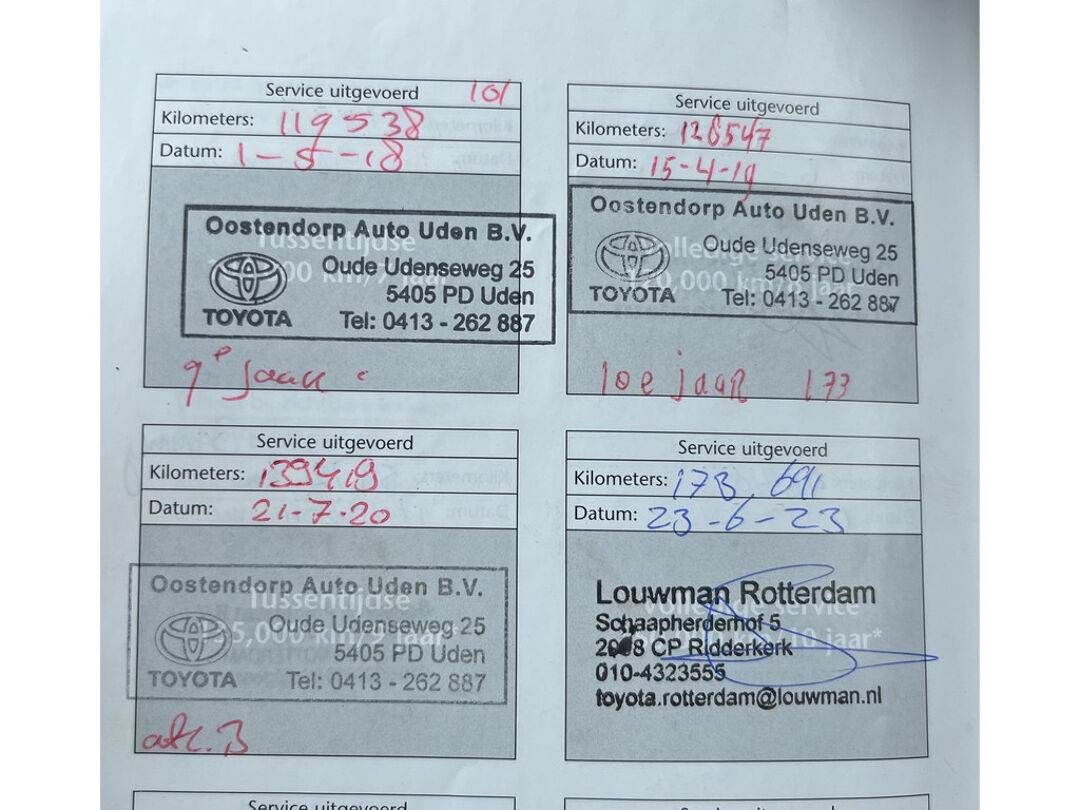 Service uitgevoerd 101
Kilometers: 119538
Datum: 1-5-18
Oostendorp Auto Uden B.V.
Tussentijdse
Oude Udenseweg 25
jaar
5405 PD Uden
TOYOTA Tel: 0413 - 262 887
9e jaar
Service uitgevoerd
Kilometers: 128547
Datum: 15-4-19
Oostendorp Auto Uden B.V.
Volledige service
Oude Udenseweg 25
jaar
5405 PD Uden
TOYOTA Tel: 0413 - 262 887
10e jaar 173
Service uitgevoerd
Kilometers: 139419
Datum: 21-7-20
Oostendorp Auto Uden B.V.
Tussentijdse
Oude Udenseweg 25
jaar*
5405 PD Uden
TOYOTA Tel: 0413 - 262 887
Service uitgevoerd
Kilometers: 173,691
Datum: 23-6-23
Louwman Rotterdam
Volledige service
Schaapherderhof 5
CP Ridderkerk
10 jaar*
010-4323555
toyota.rotterdam@louwman.nl
Service uitgevoerd